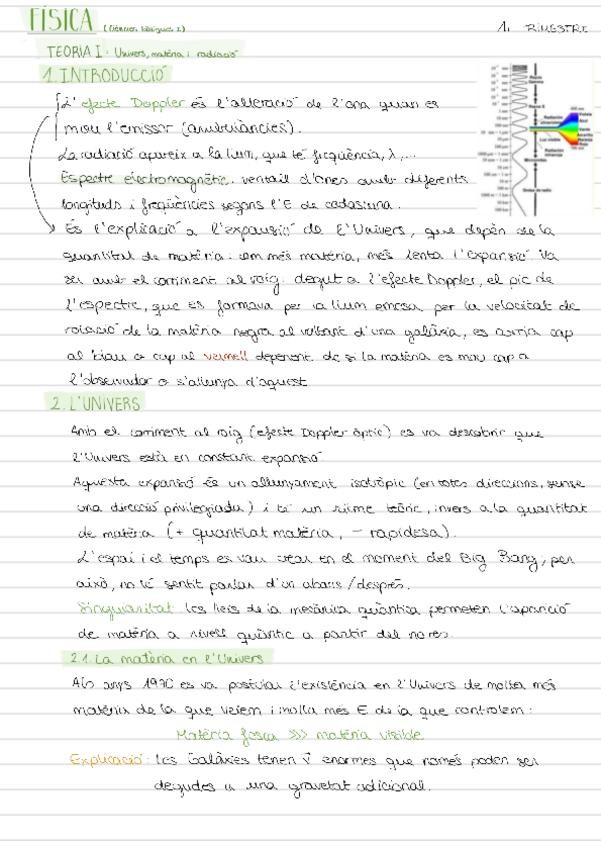 FÍSICA (Ciències biològiques I) 1r TRIMESTRE
TEORIA I: Univers, matèria i radiació
1. INTRODUCCIÓ
L'efecte Doppler és l'alteració de l'ona quan es
mou l'emissor (ambulàncies).
La radiació apareix a la llum, que té freqüència, λ,...
Espectre electromagnètic: ventall d'ones amb diferents
longituds i freqüències segons l'E de cadascuna.
És l'explicació a l'expansió de l'Univers, que depèn de la
quantitat de matèria: com més matèria, més lenta l'expansió. Va
ser amb el corriment al roig: degut a l'efecte Doppler, el pic de
l'espectre, que es formava per la llum emesa per la velocitat de
rotació de la matèria negra al voltant d'una galàxia, es corria cap
al blau o cap al vermell depenent de si la matèria es mou cap a
l'observador o s'allunya d'aquest.
2. L'UNIVERS
Amb el corriment al roig (efecte Doppler òptic) es va descobrir que
l'Univers està en constant expansió.
Aquesta expansió és un allunyament isotròpic (en totes direccions, sense
una direcció privilegiada) i té un ritme teòric, invers a la quantitat
de matèria (+ quantitat matèria, - rapidesa).
L'espai i el temps es van crear en el moment del Big Bang, per
això, no té sentit parlar d'un abans/després.
Singularitat: les lleis de la mecànica quàntica permeten l'aparició
de matèria a nivell quàntic a partir del no res.
2.1. La matèria en l'Univers
Als anys 1970 es va postular l'existència en l'Univers de molta més
matèria de la que veiem i molta més E de la que controlem:
Matèria fosca >>> matèria visible
Explicació: les Galàxies tenen v enormes que només poden ser
degudes a una gravetat addicional.